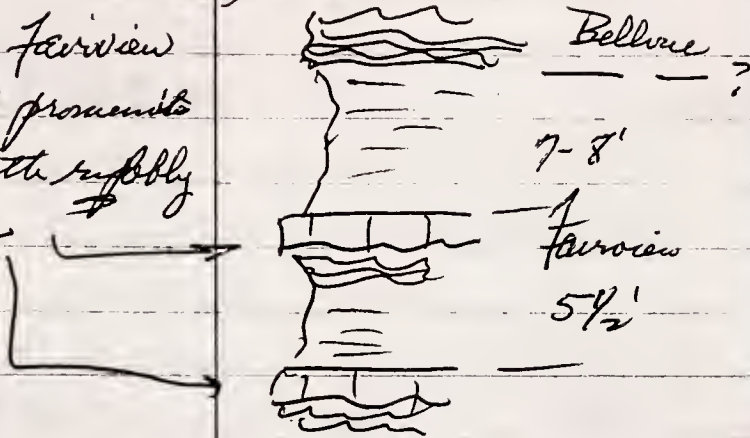 Fairview
prominent
the rubbly
Bellvue
?
7-8'
Fairview
5 1/2'